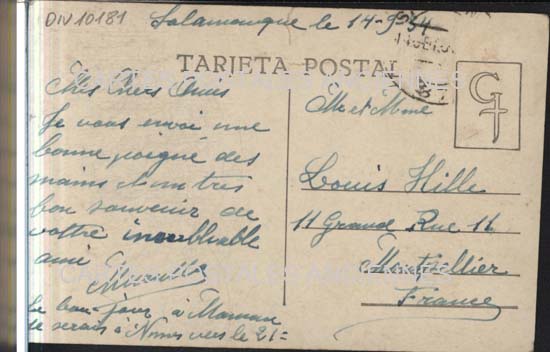 DIV10181
Salamanque le 14-9-54
TARJETA POSTAL
Mes Chers Amis
Je vous envoi une
bonne poigné des
mains et un tres
bon souvenir de
vottre inoubliable
ami
Le bon-jour à Maman
Je serais à Nimes vers le 21=
Mr et Mme
Louis Hille
11 Grand Rue 11
Montpellier
France